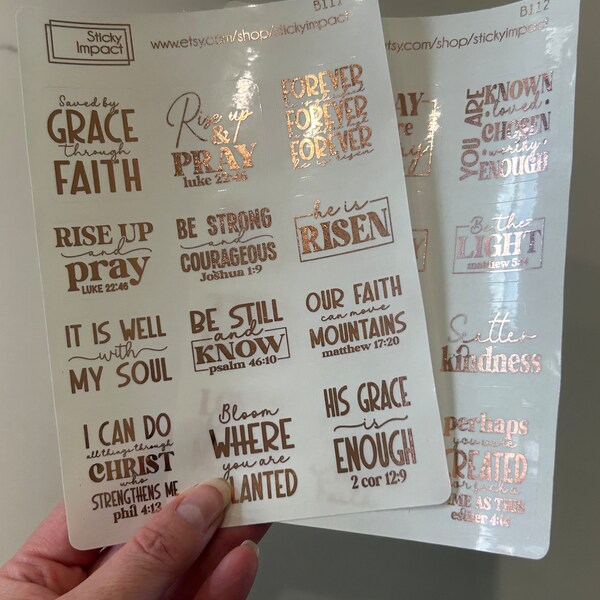 Sticky
Impact
www.etsy.com/shop/stickyimpact
B111
Saved by
GRACE
through
FAITH
Rise up
&
PRAY
luke 22:46
FOREVER
FOREVER
FOREVER
RISE UP
and
pray
LUKE 22:46
BE STRONG
and
COURAGEOUS
Joshua 1:9
he is
RISEN
IT IS WELL
with
MY SOUL
BE STILL
and
KNOW
psalm 46:10
OUR FAITH
can move
MOUNTAINS
matthew 17:20
I CAN DO
all things through
CHRIST
who
STRENGTHENS ME
phil 4:13
Bloom
WHERE
you are
PLANTED
HIS GRACE
is
ENOUGH
2 cor 12:9
B112
www.etsy.com/shop/stickyimpact
YOU ARE
KNOWN
loved
CHOSEN
worthy
ENOUGH
Be the
LIGHT
matthew 5:14
Scatter
kindness
perhaps
you were
CREATED
for such a
TIME AS THIS
esther 4:14